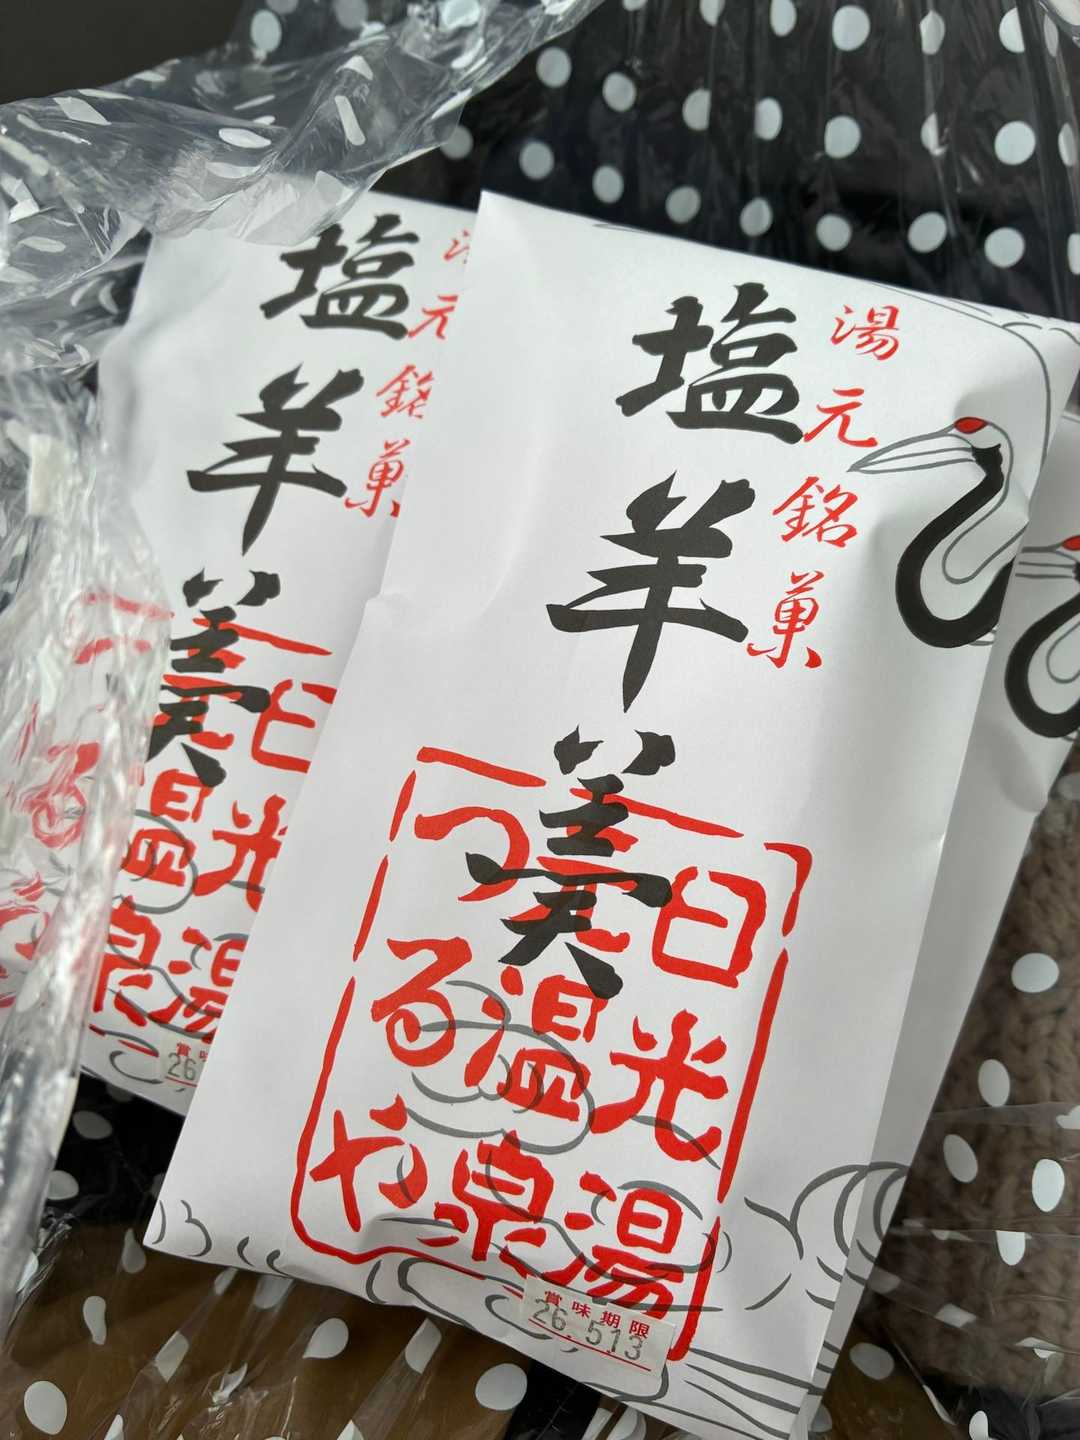 湯元銘菓
塩羊羹
日光湯
元温泉
つるや
賞味期限
26. 513
元銘菓
塩羊羹
日光湯
温泉
る
賞味
26